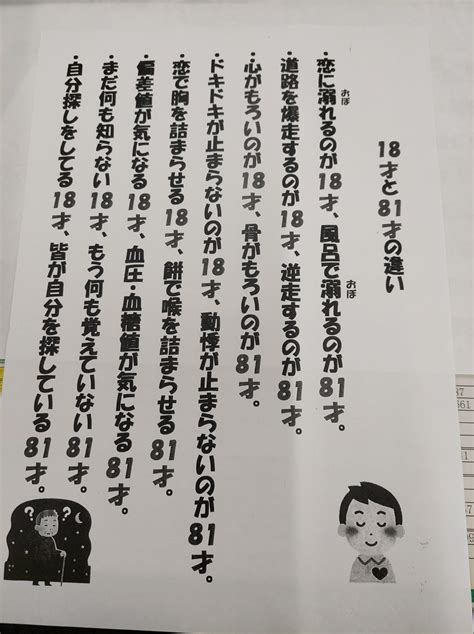 18才と81才の違い
・恋に溺れるのが18才、風呂で溺れるのが81才。
おぼ
おぼ
・道路を爆走するのが18才、逆走するのが81才。
・心がもろいのが18才、骨がもろいのが81才。
・ドキドキが止まらないのが18才、動悸が止まらないのが81才。
・恋で胸を詰まらせる18才、餅で喉を詰まらせる81才。
・偏差値が気になる18才、血圧・血糖値が気になる81才。
・まだ何も知らない18才、もう何も覚えていない81才。
・自分探しをしてる18才、皆が自分を探している81才。
? ?